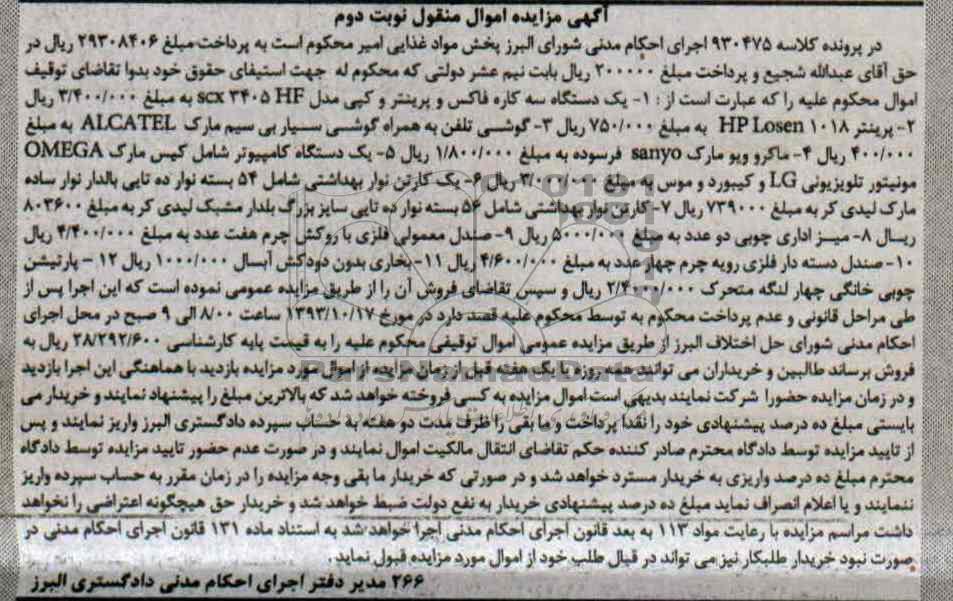 آگهی مزایده اموال منقول نوبت دوم
در پرونده کلاسه ۹۳۰۴۷۵ اجرای احکام مدنی شورای البرز پخش مواد غذایی امیر محکوم است به پرداخت مبلغ ۲۹۳۰۸۴۰۶ ریال در
حق آقای عبدالله شجیع و پرداخت مبلغ ۲۰۰۰۰۰ ریال بابت نیم عشر دولتی که محکوم له جهت استیفای حقوق خود بدوا تقاضای توقیف
اموال محکوم علیه را که عبارت است از : ۱- یک دستگاه سه کاره فاکس و پرینتر و کپی مدل scx ۳۴۰۵ HF به مبلغ ۳/۴۰۰/۰۰۰ ریال
۲- پرینتر HP Losen ۱۰۱۸ به مبلغ ۷۵۰/۰۰۰ ریال ۳- گوشی تلفن به همراه گوشی سیار بی سیم مارک ALCATEL به مبلغ
۴۰۰/۰۰۰ ریال ۴- ماکرو ویو مارک sanyo فرسوده به مبلغ ۱/۸۰۰/۰۰۰ ریال ۵- یک دستگاه کامپیوتر شامل کیس مارک OMEGA
مونیتور تلویزیونی LG و کیبورد و موس به مبلغ ۳/۰۰۰/۰۰۰ ریال ۶- یک کارتن نوار بهداشتی شامل ۵۴ بسته نوار ده تایی بالدار نوار ساده
مارک لیدی کر به مبلغ ۷۳۹۰۰۰ ریال ۷- کارتن نوار بهداشتی شامل ۵۶ بسته نوار ده تایی سایز بزرگ بلدار مشبک لیدی کر به مبلغ ۸۰۳۶۰۰
ریال ۸- میز اداری چوبی دو عدد به مبلغ ۵۰۰۰/۰۰۰ ریال ۹- صندل معمولی فلزی با روکش چرم هفت عدد به مبلغ ۴/۴۰۰/۰۰۰ ریال
۱۰- صندل دسته دار فلزی رویه چرم چهار عدد به مبلغ ۴/۶۰۰/۰۰۰ ریال ۱۱- بخاری بدون دودکش آبسال ۱۰۰۰/۰۰۰ ریال ۱۲ - پارتیشن
چوبی خانگی چهار لنگه متحرک ۲/۴۰۰۰/۰۰۰ ریال و سپس تقاضای فروش آن را از طریق مزایده عمومی نموده است که این اجرا پس از
طی مراحل قانونی و عدم پرداخت محکوم به توسط محکوم علیه قصد دارد در مورخ ۱۳۹۳/۱۰/۱۷ ساعت ۸/۰۰ الی ۹ صبح در محل اجرای
احکام مدنی شورای حل اختلاف البرز از طریق مزایده عمومی اموال توقیفی محکوم علیه را به قیمت پایه کارشناسی ۲۸/۲۹۲/۶۰۰ ریال به
فروش برساند طالبین و خریداران می توانند همه روزه یا یک هفته قبل از زمان مزایده از اموال مورد مزایده بازدید با هماهنگی این اجرا بازدید
و در زمان مزایده حضورا شرکت نمایند بدیهی است اموال مزایده به کسی فروخته خواهد شد که بالاترین مبلغ را پیشنهاد نمایند و خریدار می
بایستی مبلغ ده درصد پیشنهادی خود را نقدا پرداخت و ما بقی را ظرف مدت دو هفته به حساب سپرده دادگستری البرز واریز نمایند و پس
از تایید مزایده توسط دادگاه محترم صادر کننده حکم تقاضای انتقال مالکیت اموال نمایند و در صورت عدم حضور تایید مزایده توسط دادگاه
محترم مبلغ ده درصد واریزی به خریدار مسترد خواهد شد و در صورتی که خریدار ما بقی وجه مزایده را در زمان مقرر به حساب سپرده واریز
ننمایند و یا اعلام انصراف نماید مبلغ ده درصد پیشنهادی خریدار به نفع دولت ضبط خواهد شد و خریدار حق هیچگونه اعتراضی را نخواهد
داشت مراسم مزایده با رعایت مواد ۱۱۳ به بعد قانون اجرای احکام مدنی اجرا خواهد شد به استناد ماده ۱۳۱ قانون اجرای احکام مدنی در
صورت نبود خریدار طلبکار نیز می تواند در قبال طلب خود از اموال مورد مزایده قبول نماید.
۲۶۶ مدیر دفتر اجرای احکام مدنی دادگستری البرز